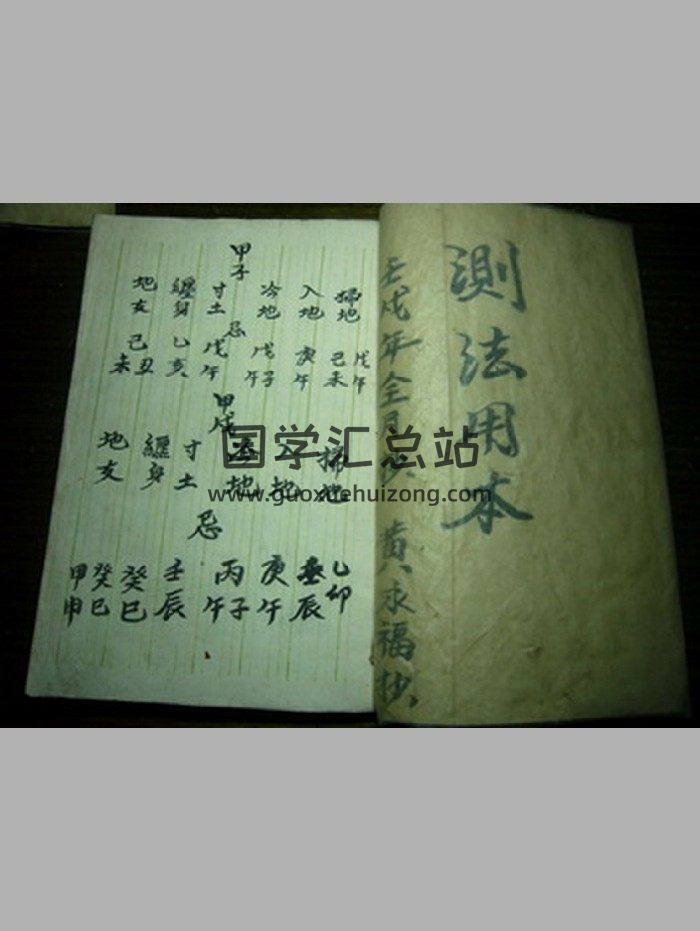 測法用本
壬戌年全月
黄永福抄
甲子
掃地
入地
冷地
寸土
纏身
地支
忌
戊午
己未
庚午
戊子
午
戊午
乙亥
己丑
未
甲戌
掃地
入地
冷地
寸土
纏身
地支
忌
乙卯
壬辰
庚午
丙子
午
壬辰
癸巳
癸巳
甲申
国学汇总站
www.guoxuehuizong.com